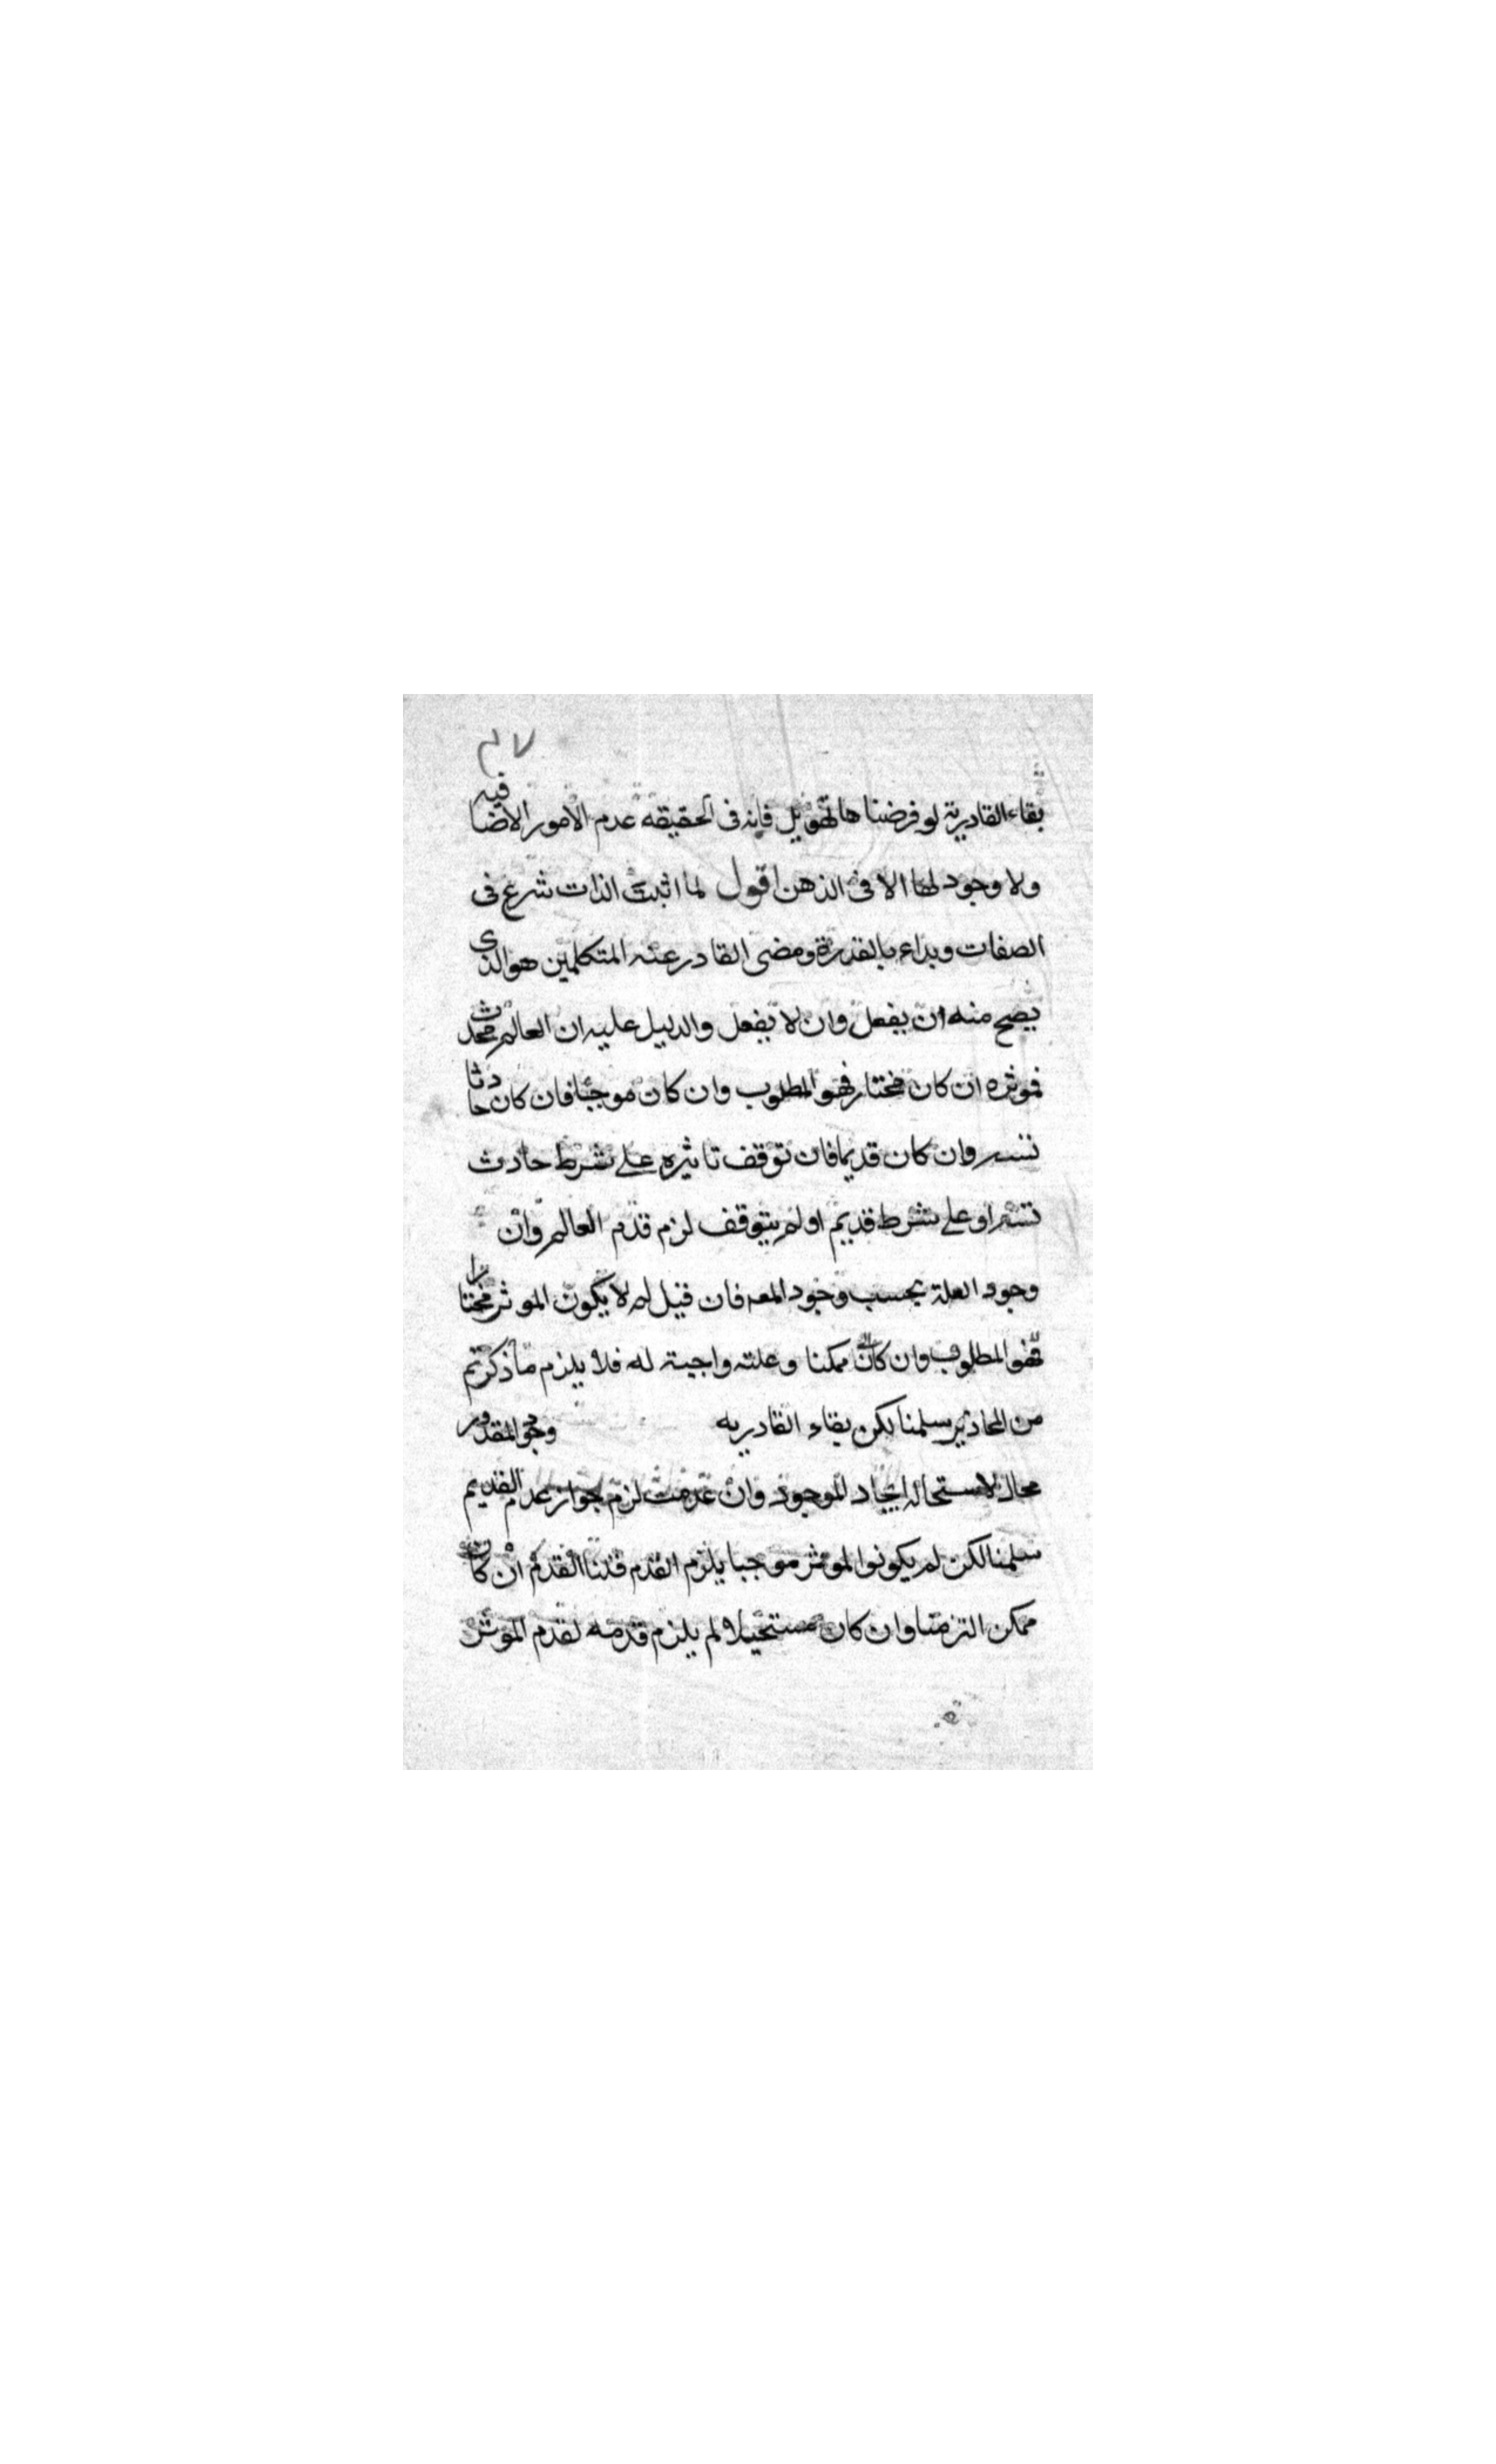 ٤٧
بقاء القادرية لو فرضنا ها تهويل فانه فى الحقيقه عدم الامور الاضافيه
ولا وجود لها الا فى الذهن اقول لما اثبت الذات شرع فى
الصفات وبداء بالقدرة ومضى القادر عند المتكلمين هو الذى
يصح منه ان يفعل وان لا يفعل والدليل عليه ان العالم محدث
فموثره ان كان مختار فهو المطلوب وان كان موجبا فان كان حادثا
تسـ وان كان قديما فان توقف تاثيره على شرط حادث
تسـ او على شرط قديم او لم يتوقف لزم قدم العالم وان
وجود العلة بحسب وجود المعه فان قيل لم لا يكون الموثر مختارا
فهو المطلوب وان كان ممكنا وعلته واجبة له فلا يلزم ما ذكرتم
من المحاذير سلمنا لكن بقاء القادريه وجو المقدور
محال لاستحاله ايجاد الموجود وان عدمت لزم جواز عدم القديم
سلمنا لكن لم يكونوا لموثر موجبا يلزم القدم قلنا القدم ان كان
ممكن التزمنا وان كان مستحيلا لم يلزم قدمه لقدم الموثر